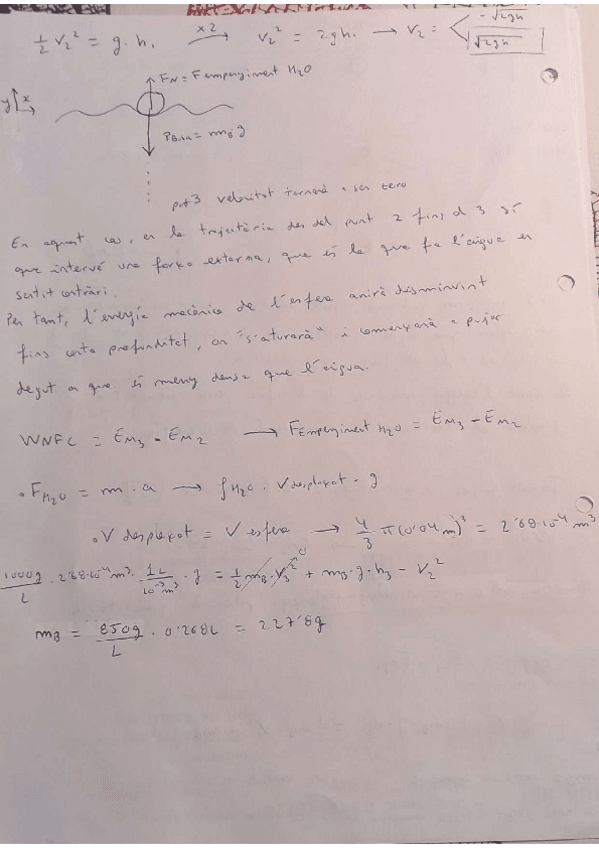 ½ V₂² = g · h₁ —x2→ V₂² = 2gh₁ → V₂ = < -√2gh
√2gh
F_N = F empenyiment H₂O
y x
P_Bola = m_B · g
pt 3 velocitat tornarà a ser zero
En aquest cas, en la trajectòria des del punt 2 fins al 3 sí
que intervé una força externa, que és la que fa l'aigua en
sentit contrari.
Per tant, l'energia mecànica de l'esfera anirà disminuint
fins certa profunditat, on "s'aturarà" i començarà a pujar
degut a que és meny densa que l'aigua.
WNFC = E_M3 - E_M2 → F Empenyiment H₂O = E_M3 - E_M2
• F_H₂O = m · a → ρ_H₂O · V desplaçat · g
• V desplaçat = V esfera → 4/3 π (0'04 m)³ = 2'68·10⁻⁴ m³
1000g/L · 2'68·10⁻⁴ m³ · 1L/10⁻³m³ · g = ½ m_B · V₃² ⁰ + m_B · g · h₃ - V₂²
m_B = 850g/L · 0'268L = 227'8g